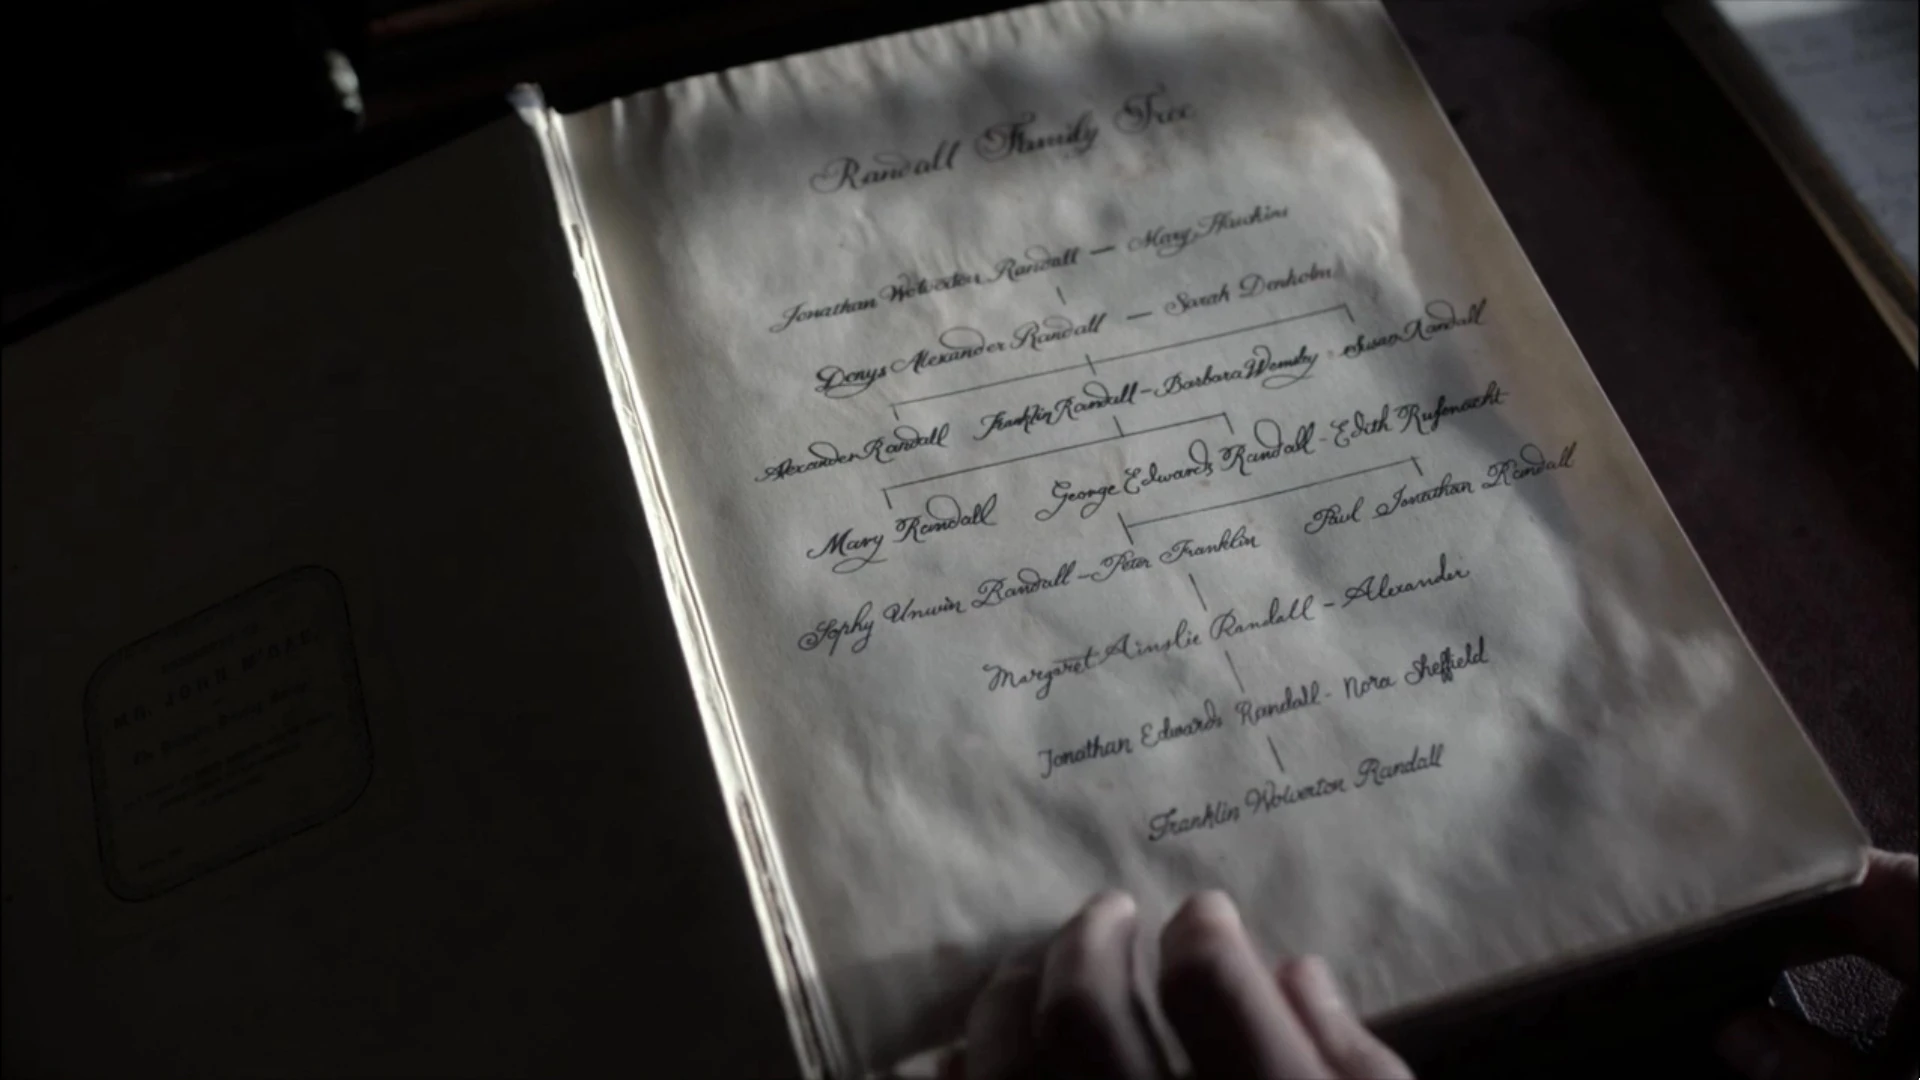 Randall Family Tree
Jonathan Wolverton Randall — Mary Hawkins
Denys Alexander Randall — Sarah Denholm
Alexander Randall Franklin Randall - Barbara Wemsby Susan Randall
Mary Randall George Edwards Randall - Edith Rufenacht
Sophy Unwin Randall - Peter Franklin Paul Jonathan Randall
Margaret Ainslie Randall - Alexander
Jonathan Edwards Randall - Nora Sheffield
Franklin Wolverton Randall
MR. JOHN